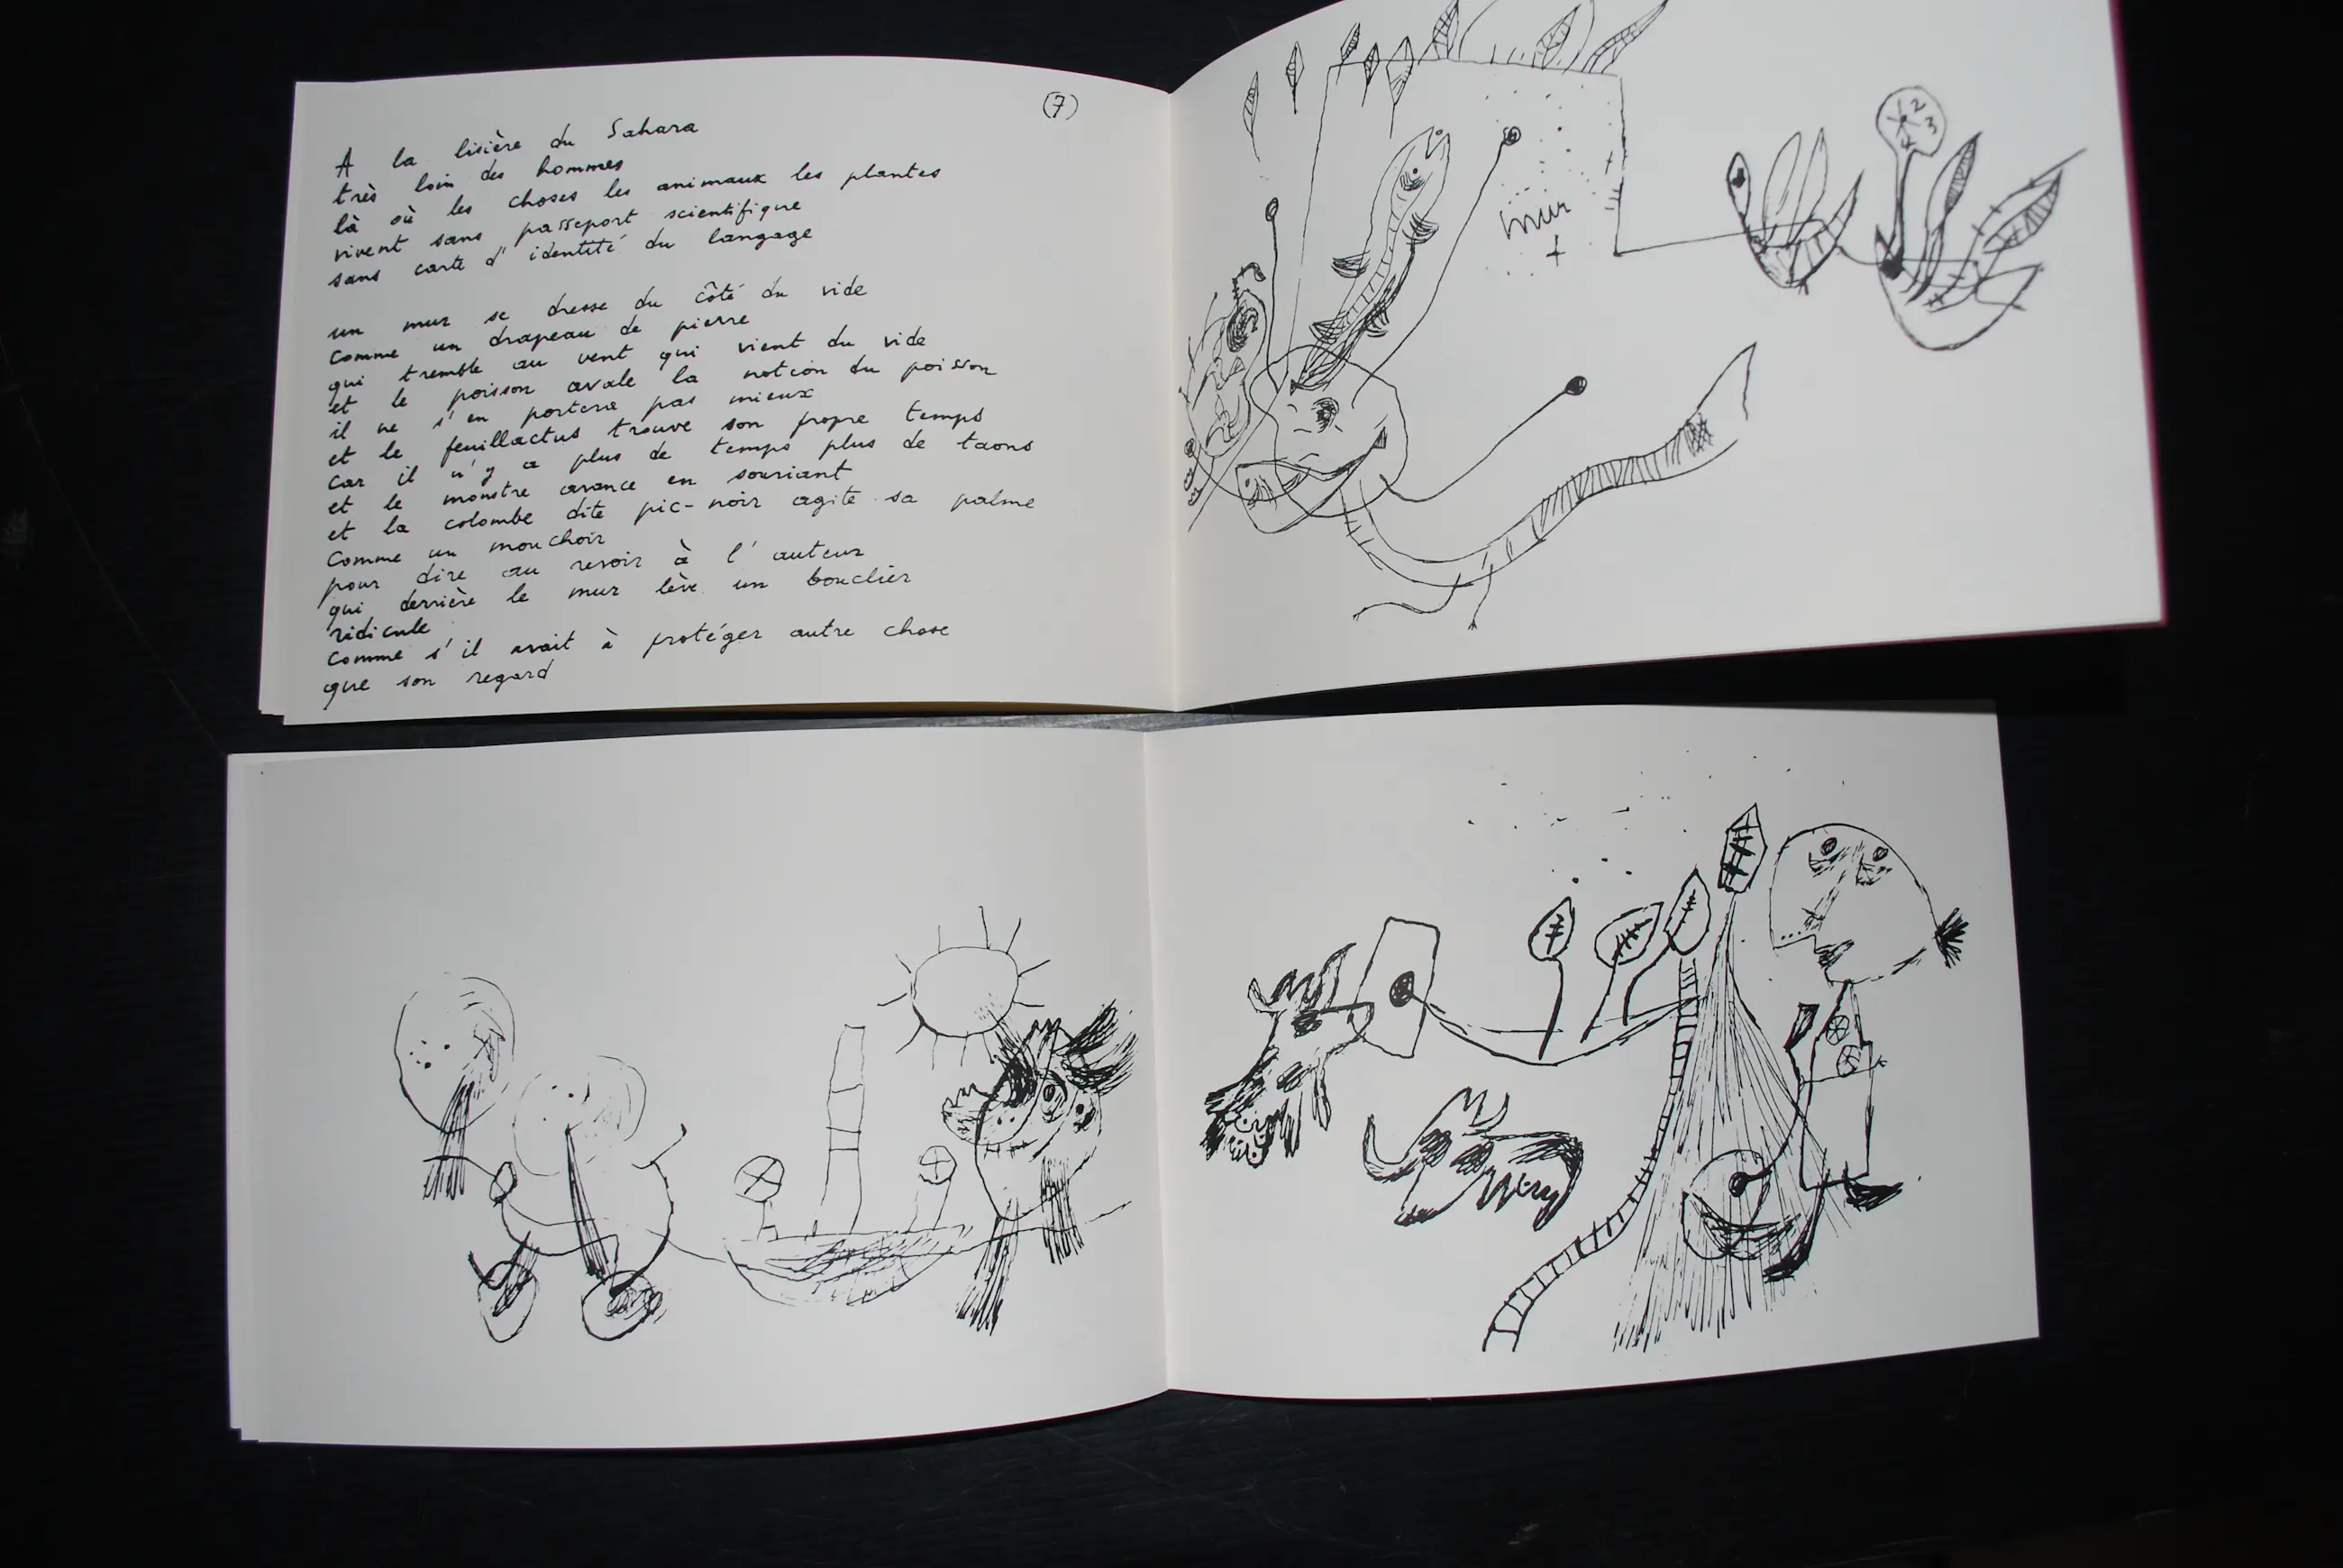 (7)
A la lisière du Sahara
très loin des hommes
là où les choses les animaux les plantes
vivent sans passeport scientifique
sans carte d'identité du langage
un mur se dresse du côté du vide
comme un drapeau de pierre
qui tremble au vent qui vient du vide
et le poisson avale la notion du poisson
il ne s'en portera pas mieux
et le feuillactus trouve son propre temps
car il n'y a plus de temps plus de taons
et le monstre avance en souriant
et la colombe dite pic-noir agite sa palme
comme un mouchoir
pour dire au revoir à l'auteur
qui derrière le mur lève un bouclier
ridicule
comme s'il avait à protéger autre chose
que son regard
mur
2
3
4